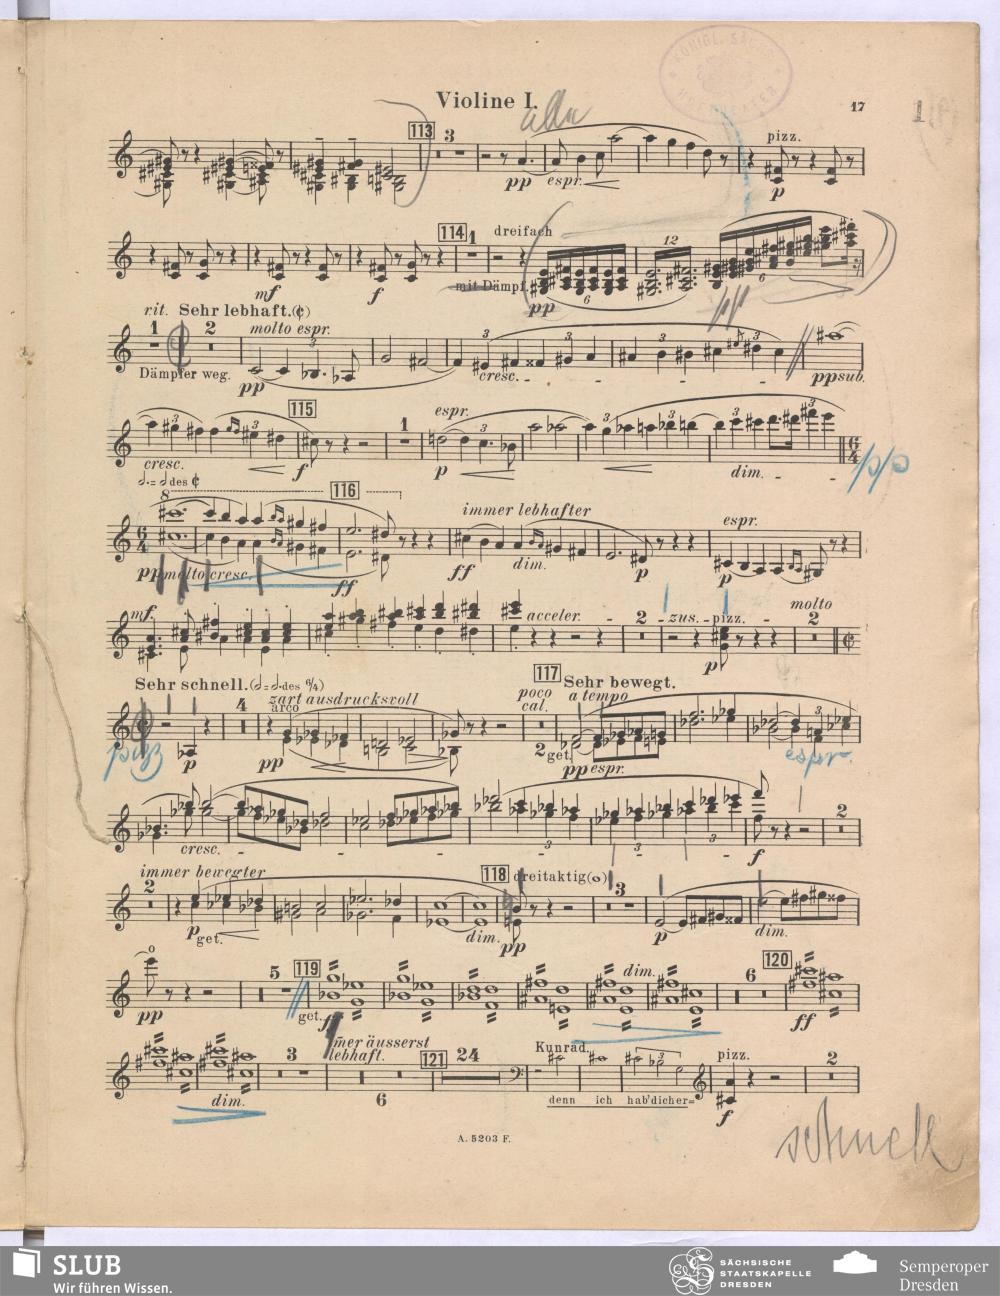 KÖNIGL. SÄCHS.
HOFTHEATER
Violine I.
17
alla
113
3
pizz.
pp
espr.
p
114
1
dreifach
12
mit Dämpf.
6
6
6
mf
f
pp
pp
rit. Sehr lebhaft.(¢)
1
2
molto espr.
3
3
3
3
3
3
Dämpfer weg.
pp
cresc.
ppsub.
3
3
115
1
espr.
3
3
3
3
3
cresc.
f
p
dim.
6/4
ppp
𝅗𝅥. = 𝅗𝅥 des ¢
8
116
immer lebhafter
espr.
6/4
pp molto cresc.
ff
ff
dim.
p
p
mf
acceler.
2
zus. pizz.
molto
2
p
Sehr schnell. (𝅗𝅥 = 𝅗𝅥. des 6/4)
4
zart ausdrucksvoll
arco
poco
cal.
117
Sehr bewegt.
a tempo
pizz
p
pp
2
get.
pp espr.
3
espr.
cresc.
3
3
3
f
2
immer bewegter
2
118
dreitaktig
3
p
get.
dim.
pp
p
dim.
o
5
119
dim.
6
120
pp
get.
ff
ff
dim.
3
immer äusserst
lebhaft.
6
121
24
Kunrad.
3
pizz.
2
denn ich hab' dicher=
f
schnell
A. 5203 F.
SLUB
Wir führen Wissen.
SÄCHSISCHE
STAATSKAPELLE
DRESDEN
Semperoper
Dresden